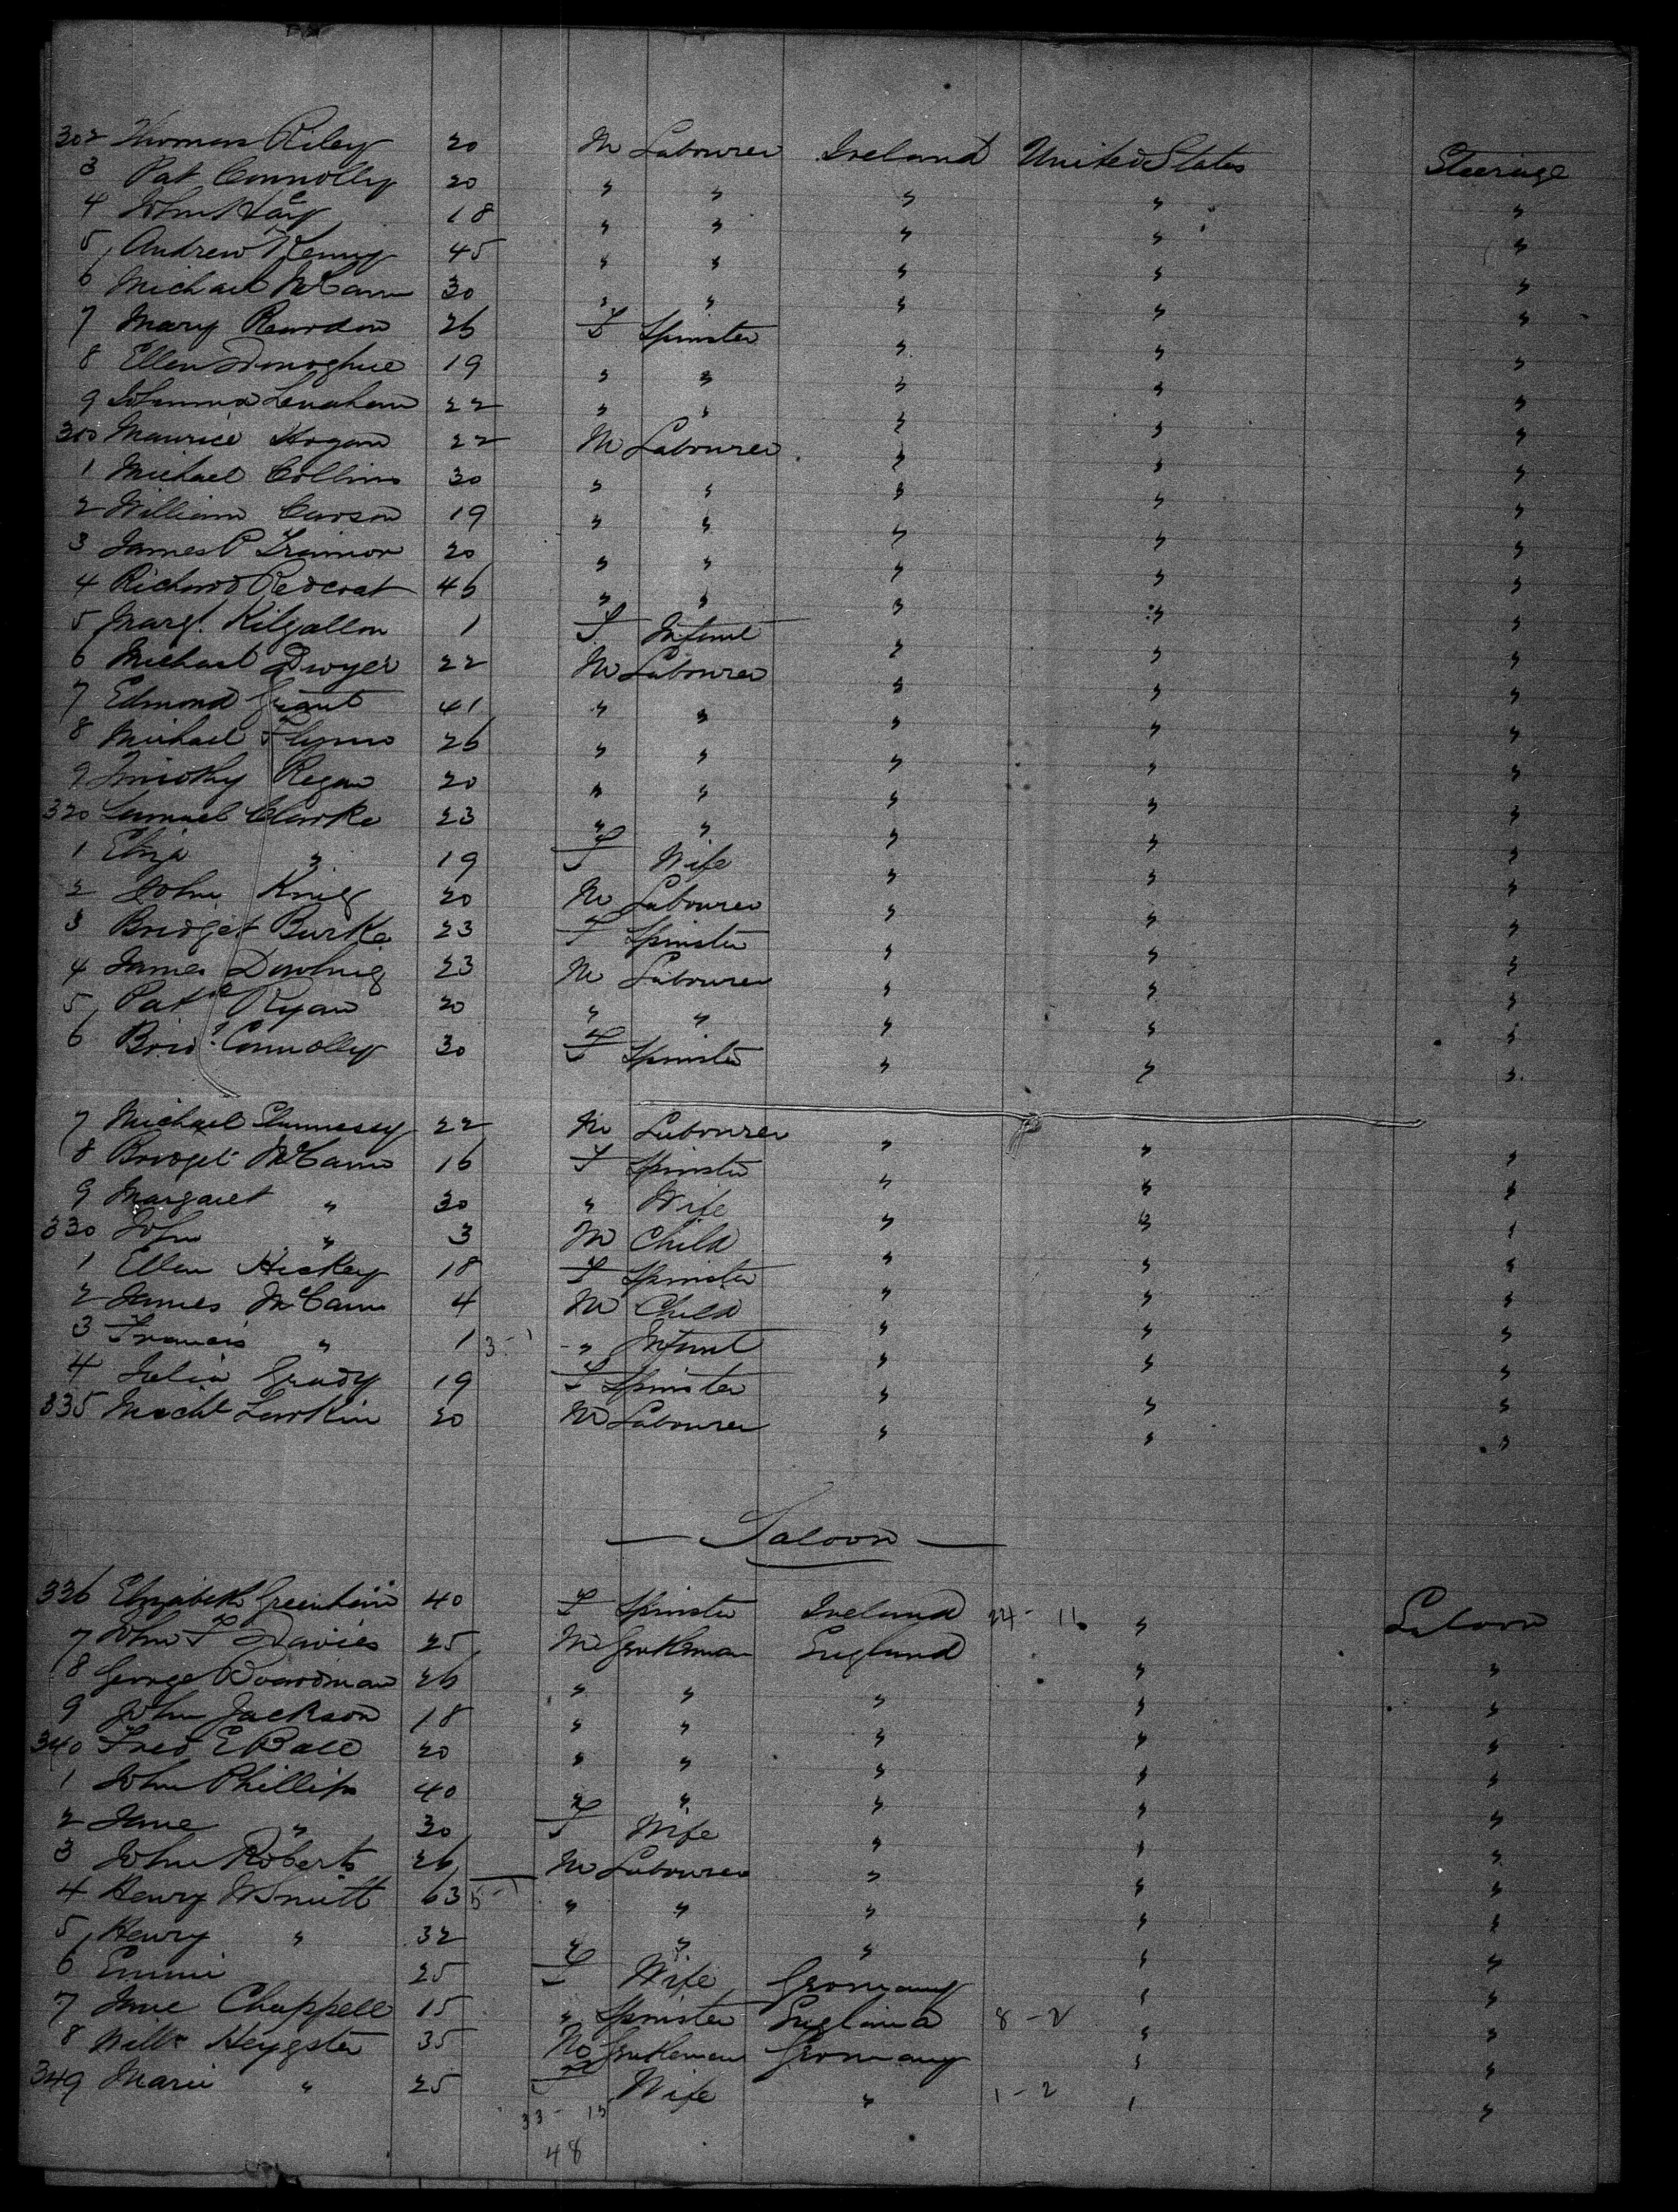 302 Thomas Riley 20 M Labourer Ireland United States Steerage
3 Pat Connolly 20 " " " " "
4 John 18 " " " " "
5 Andrew Kenny 45 " " " " "
6 Michael McCann 30 " " " " "
7 Mary Reardon 26 F Spinster " " "
8 Ellen Donoghue 19 " " " " "
9 Johanna Lenahan 22 " " " " "
310 Maurice Hogan 22 M Labourer " " "
1 Michael Collins 30 " " " " "
2 William Carson 19 " " " " "
3 James P Trainor 20 " " " " "
4 Richard Redcoat 46 " " " " "
5 Margt. Kilgallon 1 F Infant " " "
6 Michael Dwyer 22 M Labourer " " "
7 Edmond Grant 41 " " " " "
8 Michael Flynn 26 " " " " "
9 Timothy Regan 20 " " " " "
320 Samuel Clarke 23 " " " " "
1 Eliza " 19 F Wife " " "
2 John King 20 M Labourer " " "
3 Bridget Burke 23 F Spinster " " "
4 James Dowling 23 M Labourer " " "
5 Patk Ryan 20 " " " " "
6 Brid. Connolly 30 F Spinster " " "
7 Michael Shannessy 22 M Labourer " " "
8 Bridget McCann 16 F Spinster " " "
9 Margaret " 30 " Wife " " "
330 John " 3 M Child " " "
1 Ellen Hickey 18 F Spinster " " "
2 James McCann 4 M Child " " "
3 Francis " 1 3-1 " Infant " " "
4 Julia Grady 19 F Spinster " " "
335 Michl Larkin 20 M Labourer " " "
— Saloon —
336 Elizabeth 40 F Spinster Ireland 24-16 " Saloon
7 John F Davies 25 M Gentleman England " "
8 George Boardman 26 " " " " "
9 John Jackson 18 " " " " "
340 Fred E Ball 20 " " " " "
1 John Phillips 40 " " " " "
2 Jane " 30 F Wife " " "
3 John Roberts 26 M Labourer " " "
4 Henry W Smith 63 5-1 " " " " "
5 Henry " 32 " " " " "
6 Emmi 25 F Wife Germany " "
7 Jane Chappell 15 " Spinster England 8-2 " "
8 Willm Heygster 35 M Gentleman Germany " "
349 Marie " 25 F Wife " 1-2 " "
33-15
48